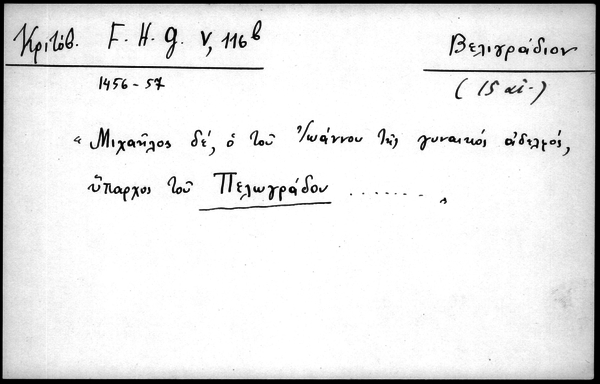 Κριτόβ. F. H. G. V, 116b
Βελιγράδιον
1456-57
(15 αἰ.)
"Μιχαῆλος δέ, ὁ τοῦ Ἰωάννου τῆς γυναικός ἀδελφός,
ὕπαρχος τοῦ Πελωγράδου ........"